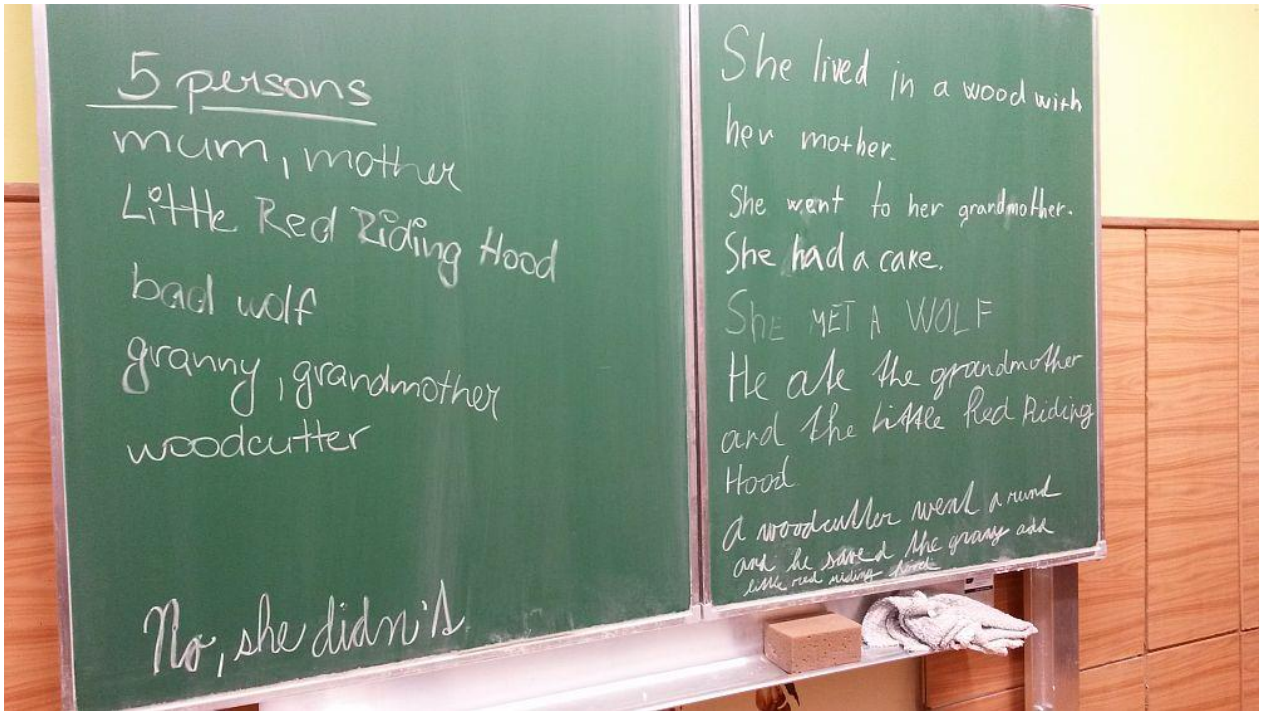 5 persons
mum, mother
Little Red Riding Hood
bad wolf
granny, grandmother
woodcutter
No, she didn't
She lived in a wood with
her mother.
She went to her grandmother.
She had a cake.
SHE MET A WOLF
He ate the grandmother
and the Little Red Riding
Hood
a woodcutter went a rund
and he saved the grany and
little red riding hood